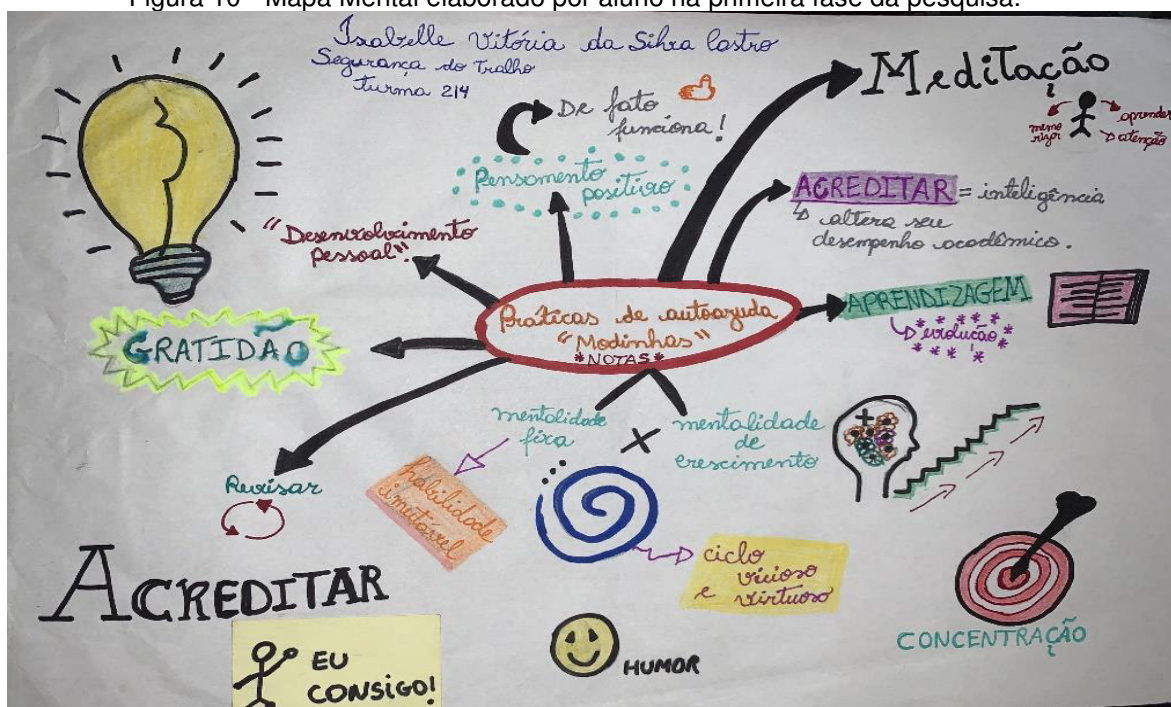 Figura 10 - Mapa Mental elaborado por aluno na primeira fase da pesquisa.
Isabelle Vitória da Silva Castro
Segurança do Trabalho
Turma 214
Meditação
memo
rizar
aprender
atenção
De fato
funciona!
Pensamento
positivo
ACREDITAR = inteligência
altera seu
desempenho acadêmico.
"Desenvolvimento
pessoal"
Práticas de autoajuda
"Modinhas"
*NOTAS*
APRENDIZAGEM
evolução
GRATIDÃO
mentalidade
fixa
X
mentalidade
de
crescimento
Revisar
habilidade
imutável
ciclo
vicioso
e virtuoso
ACREDITAR
EU
CONSIGO!
HUMOR
CONCENTRAÇÃO